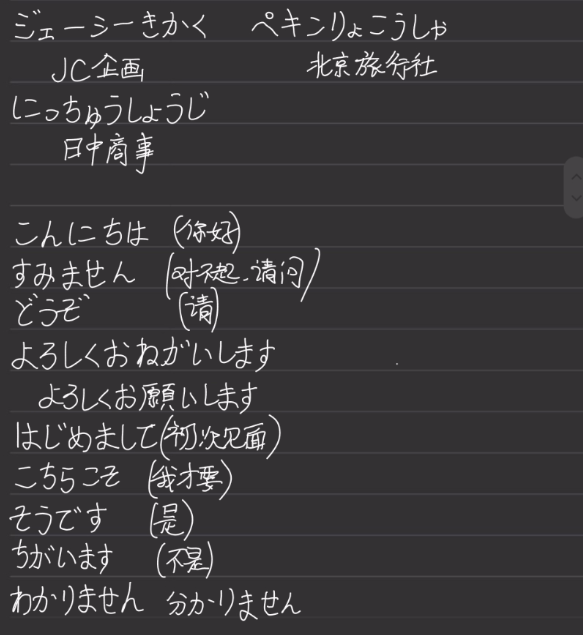 ジェーシーきかく ペキンりょこうしゃ
JC企画 北京旅行社
にっちゅうしょうじ
日中商事
こんにちは (你好)
すみません (对不起、请问)
どうぞ (请)
よろしくおねがいします
よろしくお願いします
はじめまして(初次见面)
こちらこそ (我才要)
そうです (是)
ちがいます (不是)
わかりません 分かりません